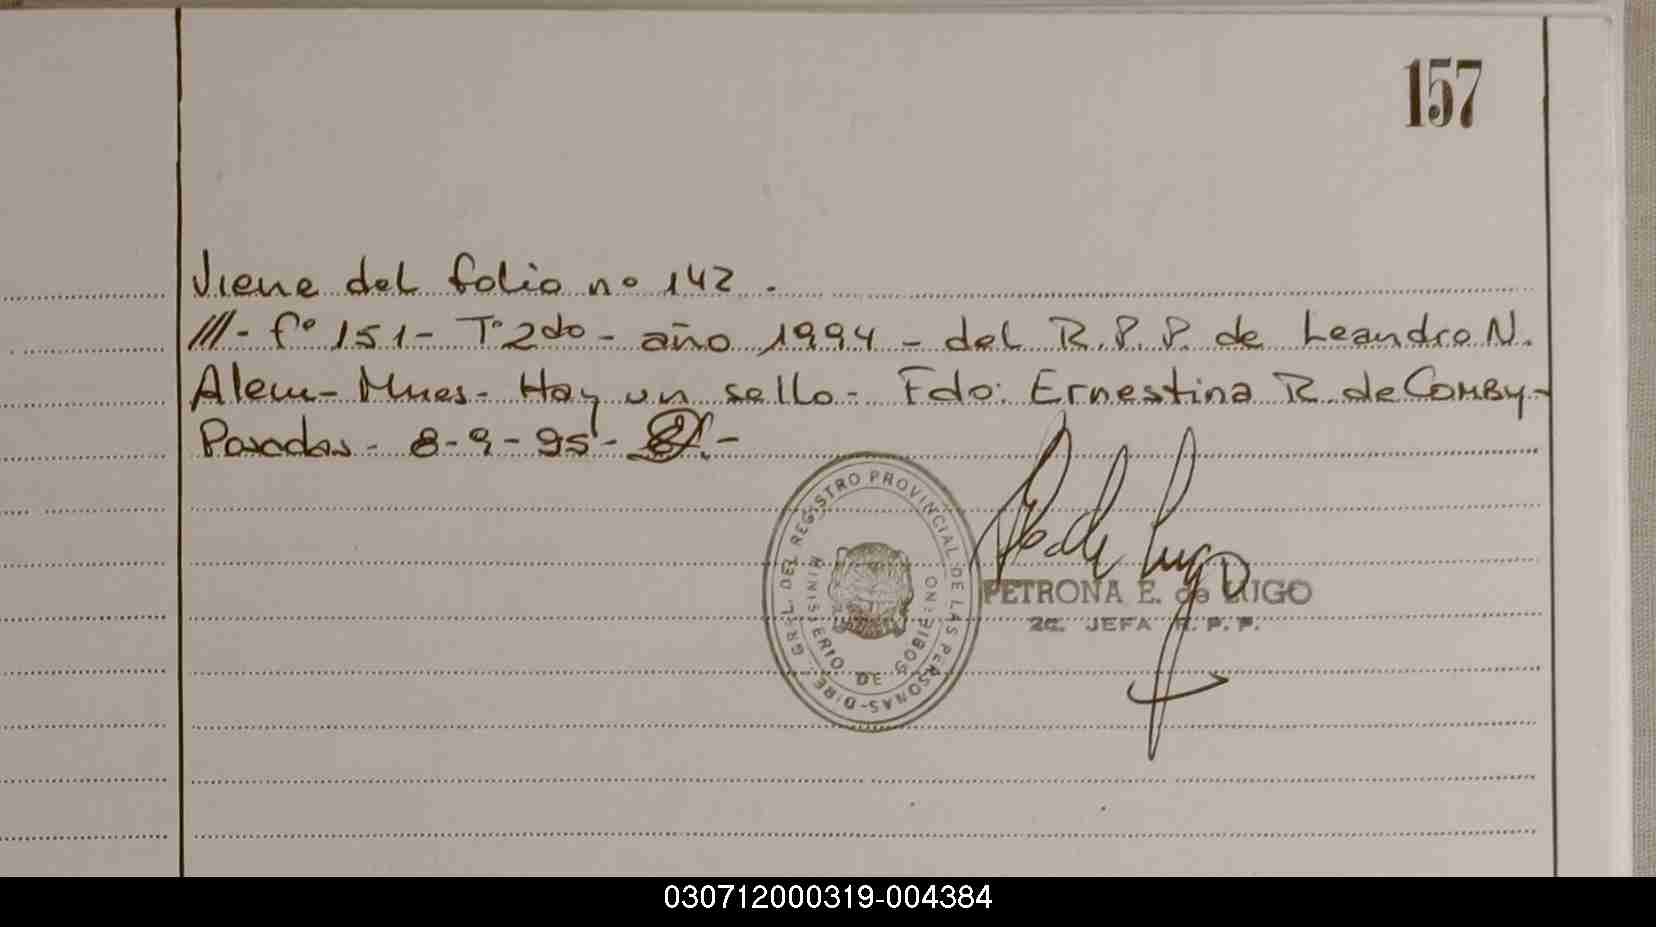 157
Viene del folio nº 142.
///- fº 151- Tº 2do- año 1994- del R.P.P. de Leandro N.
Alem- Mnes- Hay un sello- Fdo: Ernestina R. de Comby-
Posadas- 8-9-95-
DIRE. GRAL. DEL REGISTRO PROVINCIAL DE LAS PERSONAS-
MINISTERIO DE GOBIERNO
PETRONA E. de LUGO
2a. JEFA R.P.P.
030712000319-004384